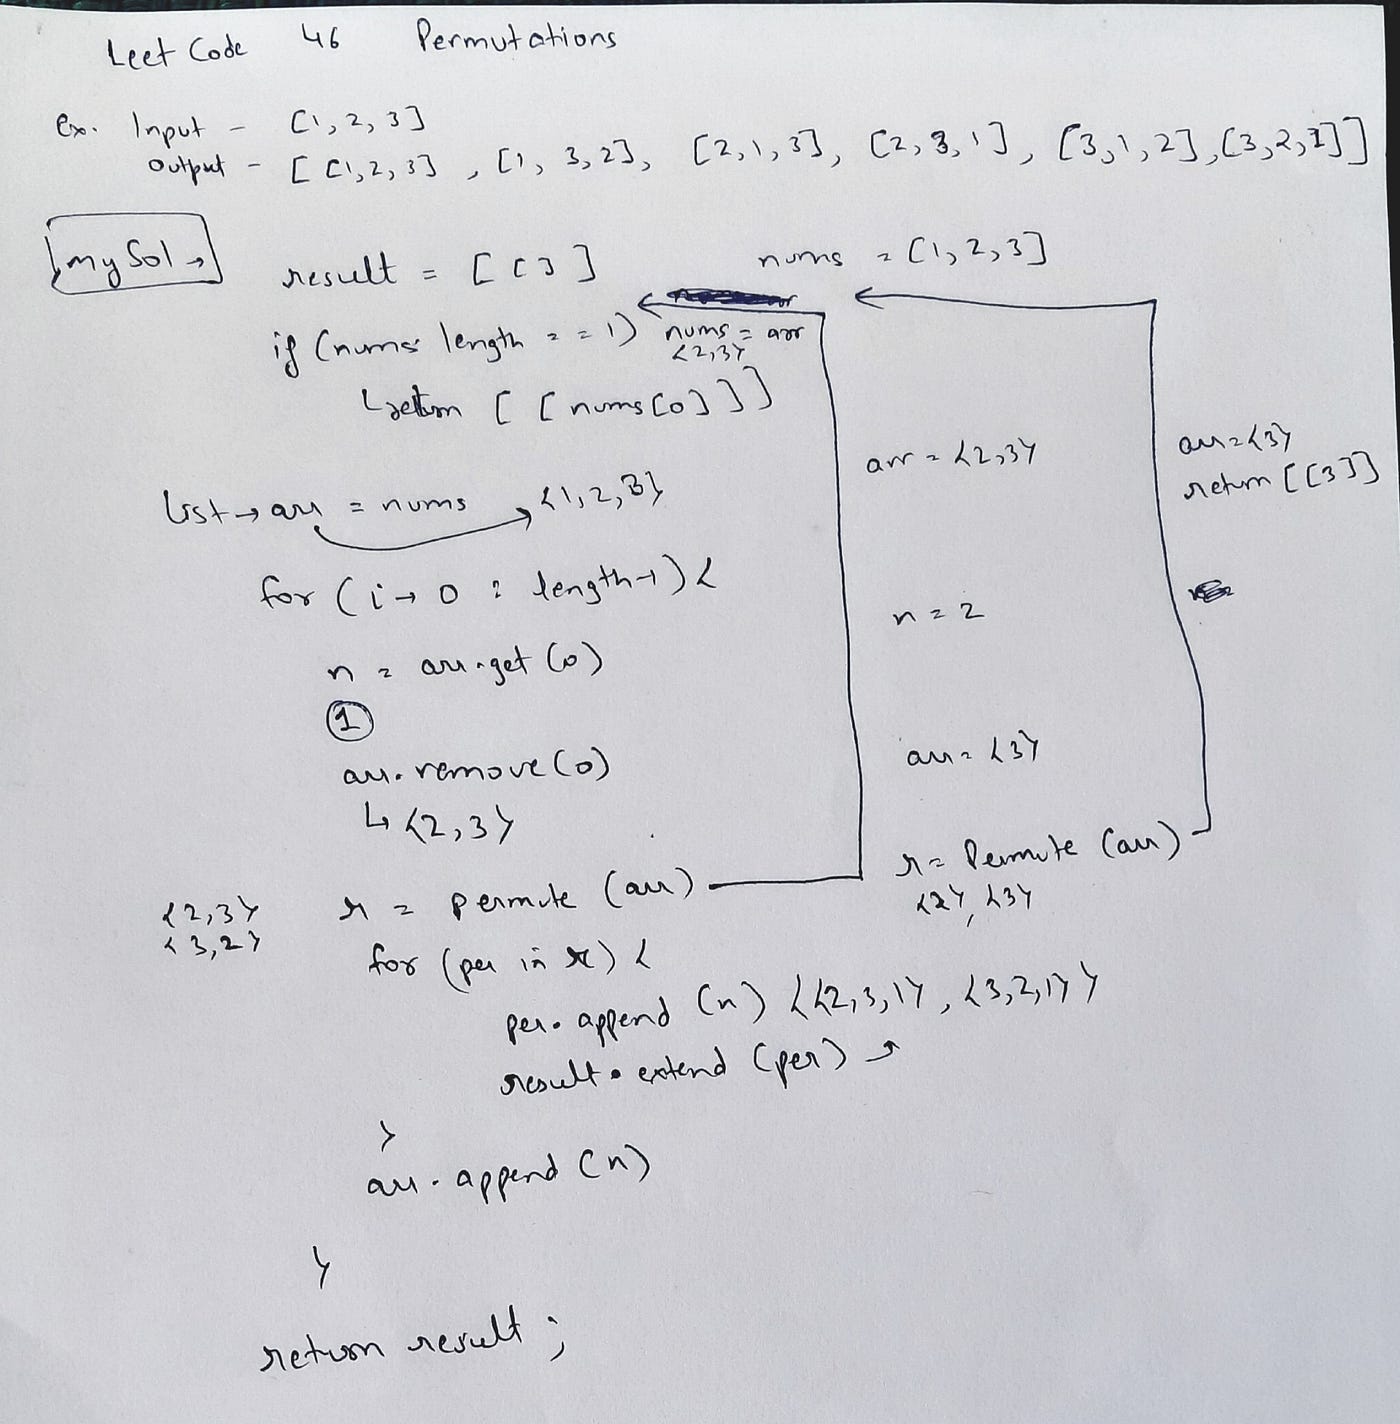 Leet Code 46 Permutations
Ex. Input - [1, 2, 3]
Output - [ [1,2,3] , [1, 3,2], [2,1,3], [2,3,1], [3,1,2],[3,2,1]]
my Sol →
result = [ [ ] ]
nums = [1,2,3]
if (nums. length == 1)
nums = arr
{2,3}
↳ return [ [ nums[0] ] ]
arr = {2,3}
arr = {3}
return [[3]]
List → arr = nums {1,2,3}
for ( i → 0 : length-1) {
n = arr.get (0)
n = 2
1
arr. remove (0)
arr = {3}
↳ {2,3}
r = permute (arr)
r = Permute (arr)
{2}, {3}
{2,3}
{3,2}
for (per in r) {
per. append (n) {{2,3,1}, {3,2,1}}
result. extend (per)
}
arr. append (n)
}
return result ;